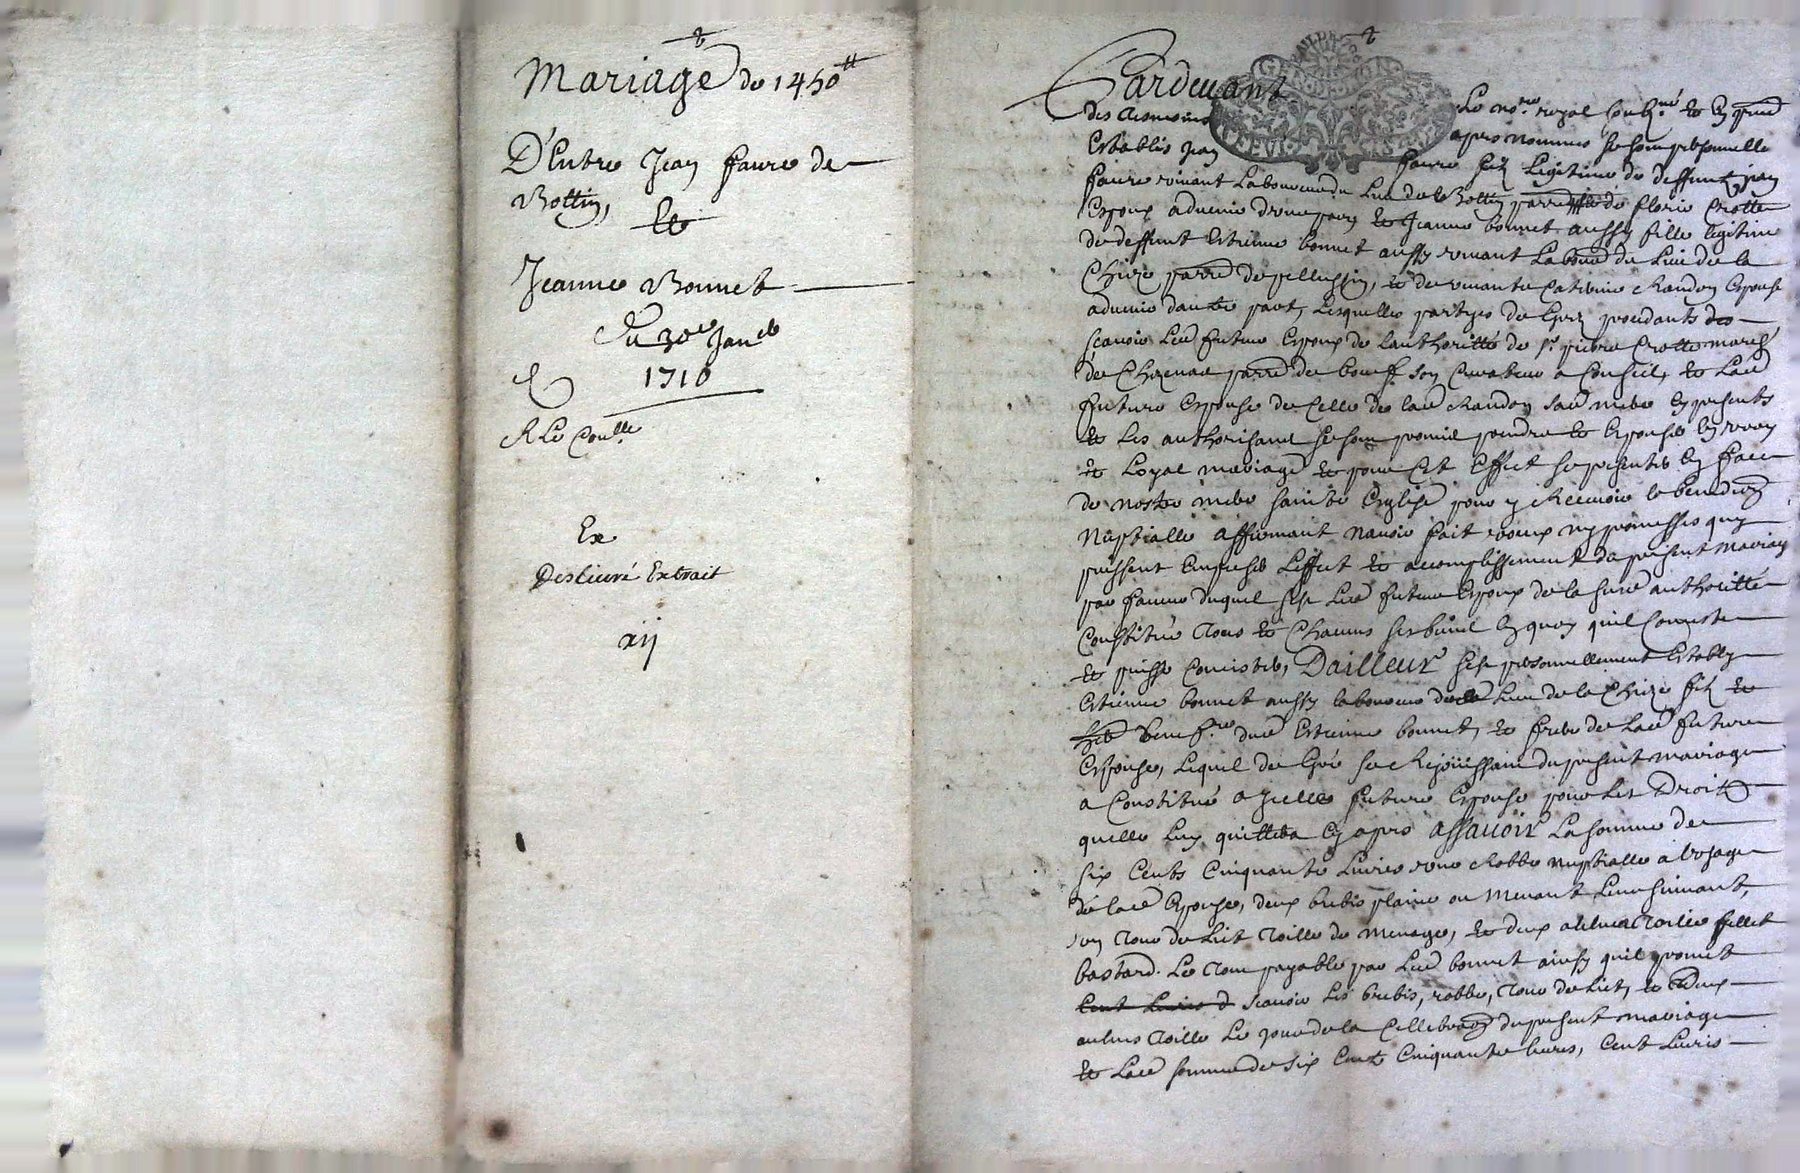 Mariage de 1450tt
D'Entre Jean faure de
Bottin,
Et
Jeanne Bonnet
Du 30e Janer
1710
R Le Conlle
Ex
Desliuré Extrait
xij
Pardeuant
Le nore royal soubzné et En pnce
des tesmoins apres nommes se sont personnellemt
Establis Jean faure filz Legitime de deffunt Jean
faure viuant Laboureur du Lieu de Bottin parre de florie Crotte
Espoux aduenir d'une part Et Jeanne bonnet aussy fille legitime
de deffunt Estienne bonnet aussy viuant Labour du Lieu de la
Chize parre de pellussin, et de viuante Catherine Chandon Espouse
aduenir dautre part, Lesquelles partyes de Gré procedants
scauoir Led futur Espoux de Lauthoritté de sr pierre Crotte march
de parre de bourg son Curateur a Conseil, et Lad
future Espouse de Celle de lad Chandon sad mere Cy presents
et Les authorisant se sont promis prendre et Espouser En vray
et Loyal mariage et pour Cet Effect se presenter En face
de nostre mere sainte Esglise pour y Receuoir la benedion
Nuptialle affirmant nauoir fait voeux ny promesses quy
puissent Empescher L'effect et accomplissement du present mariage
par faueur duquel sest Led futur Espoux de la susd authoritté
Constitué tous et Chacuns ses biens En quoy quil Consiste
et puisse Concister, Dailleur sest personnellement Estably
Estienne bonnet aussy laboureur du Lieu de la Chize filz et
dud Estienne bonnet, et frere de Lad future
Espouse, Lequel de Gré se Rejouissant du present mariage
a Constitué a Jcelle future Espouse pour Les Droits
quelle Luy quittera Cy apres assauoir La somme de
six Cents Cinquante Liures vne Robbe nuptialle a L'vsage
de lad Espouse, deux brebis plaine ou menant Leur suiuant,
vn tour de Lict toille de menage, et deux aulnes toille fillet
bastard. Le tout payable par Led bonnet ainsy quil promet
Cent Liures d scauoir Les brebis, robbe, tour de Lict, et deux
aulnes toille Le jour de la Cellebraon du present mariage
et Lad somme de six Cent Cinquante liures, Cent Liures